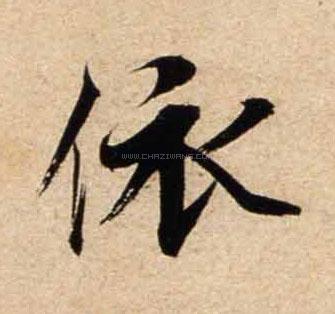 依
WWW.CHAZIWANG.COM